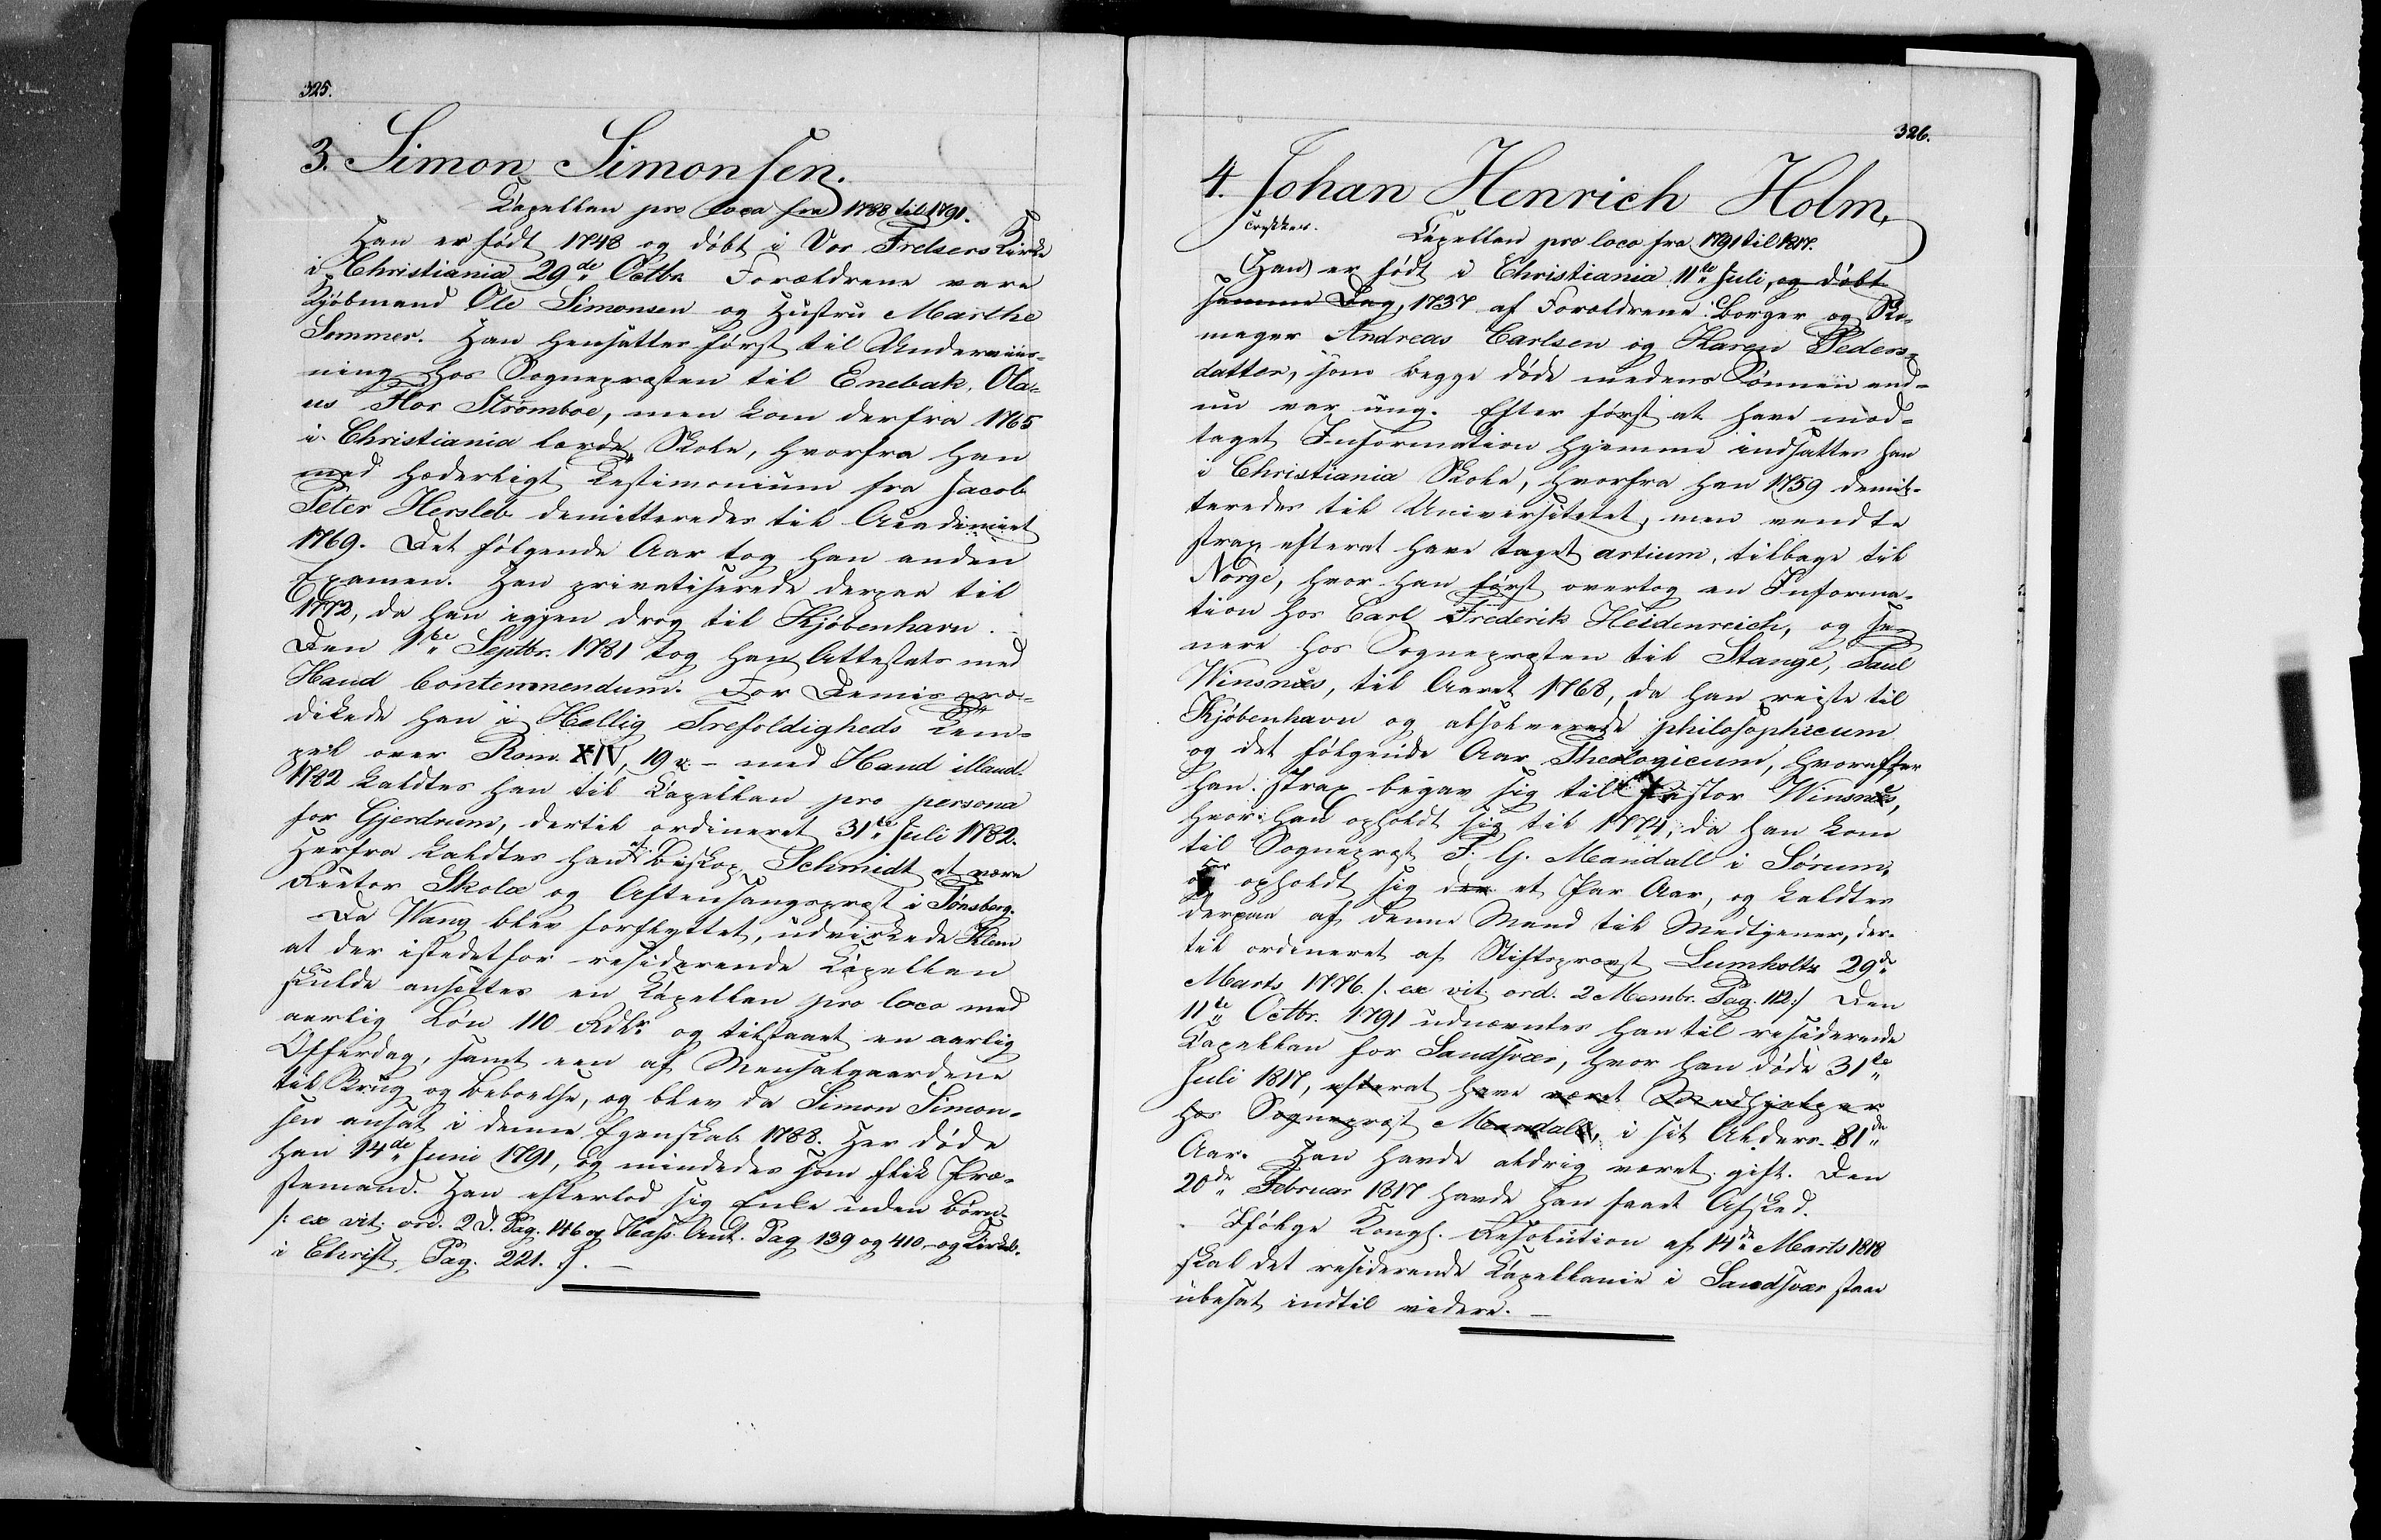 325.
3. Simon Simonsen.
Kapellan pro loco fra 1788 til 1791.
Han er født 1748 og døbt i Vor Frelsers Kirke
i Christiania 29de Octbr. Forældrene vare
Kjøbmand Ole Simonsen og Hustru Marthe
Sommer. Han hensattes først til Underviis-
ning hos Sognepræsten til Enebak, Ola-
us Flor Strømboe, men kom derfra 1765
i Christiania lærde Skole, hvorfra han
med hæderligt Testimonium fra Jacob
Peter Hersleb demitteredes til Academiet
1769. Det følgende Aar tog han anden
Examen. Han privatiserede derpaa til
1772, da han igjen drog til Kjøbenhavn.
Den 1ste Septbr. 1781 tog han Attestats med
Haud Contemnendum. For Demis præ-
dikede han i Hellig Trefoldigheds Tem-
pel over Rom. XIV, 19 v. – med Haud illaud.
1782 kaldtes han til Kapellan pro persona
for Gjerdrum, dertil ordineret 31te Juli 1782.
Herfra kaldtes han af Biskop Schmidt at være
Rector Skolæ og Aftensangspræst i Tønsberg.
Da Wang blev forflyttet, udvirkede Klem
at der istedetfor residerende Kapellan
skulde ansættes en Kapellan pro loco med
aarlig Løn 110 Rdlr. og tilstaaet en aarlig
Offerdag, samt een af Mensalgaardene
til Brug og Beboelse, og blev da Simon Simon-
sen ansat i denne Egenskab 1788. Her døde
han 14de Juni 1791, og mindedes som flik Præ-
stemand. Han efterlod sig Enke uden Børn.
/: ex vit. ord. 2 D. Pag. 146 og Hass. Ant. Pag 139 og 410 og Kirkeh.
i Christ. Pag. 221. :/. –
326.
4. Johan Henrich Holm,
Kapellan pro loco fra 1791 til 1817.
Han er født i Christiania 11te Juli, og døbt
samme Dag, 1737 af Forældrene: Borger og Sko-
mager Andreas Carlsen og Karen Peders-
datter, som begge døde medens Sønnen end-
nu var ung. Efter først at have mod-
taget Information hjemme indsattes han
i Christiania Skole, hvorfra han 1759 demit-
teredes til Universitetet, men vendte
strax efterat have taget artium, tilbage til
Norge, hvor han først overtog en Informa-
tion hos Carl Frederik Heidenreich, og se-
nere hos Sognepræsten til Stange, Paul
Winsnæs, til Aaret 1768, da han reiste til
Kjøbenhavn og absolverede philosophicum
og det følgende Aar Theologicum, hvorefter
han strax begav sig til Pastor Winsnæs,
hvor han opholdt sig til 1774, da han kom
til Sognepræst P. G. Mandall i Sørum,
opholdt sig der et Par Aar, og kaldtes
derpaa af denne Mand til Medtjener, der-
til ordineret af Stiftsprovst Lumholtz 29de
Marts 1776. /: ex vit. ord. 2 Membr. Pag. 112 :/ Den
11te Octbr. 1791 udnævntes han til residerende
Kapellan for Sandsvær, hvor han døde 31te
Juli 1817, efterat have været Medhjelper
hos Sognepræst Mandall, i sit Alders 81de
Aar. Han havde aldrig været gift. Den
20de Februar 1817 havde han faaet Afsked.
Ifølge Kongl. Resolution af 14de Marts 1818
skal det residerende Kapellanie i Sandsvær staae
ubesat indtil videre. –